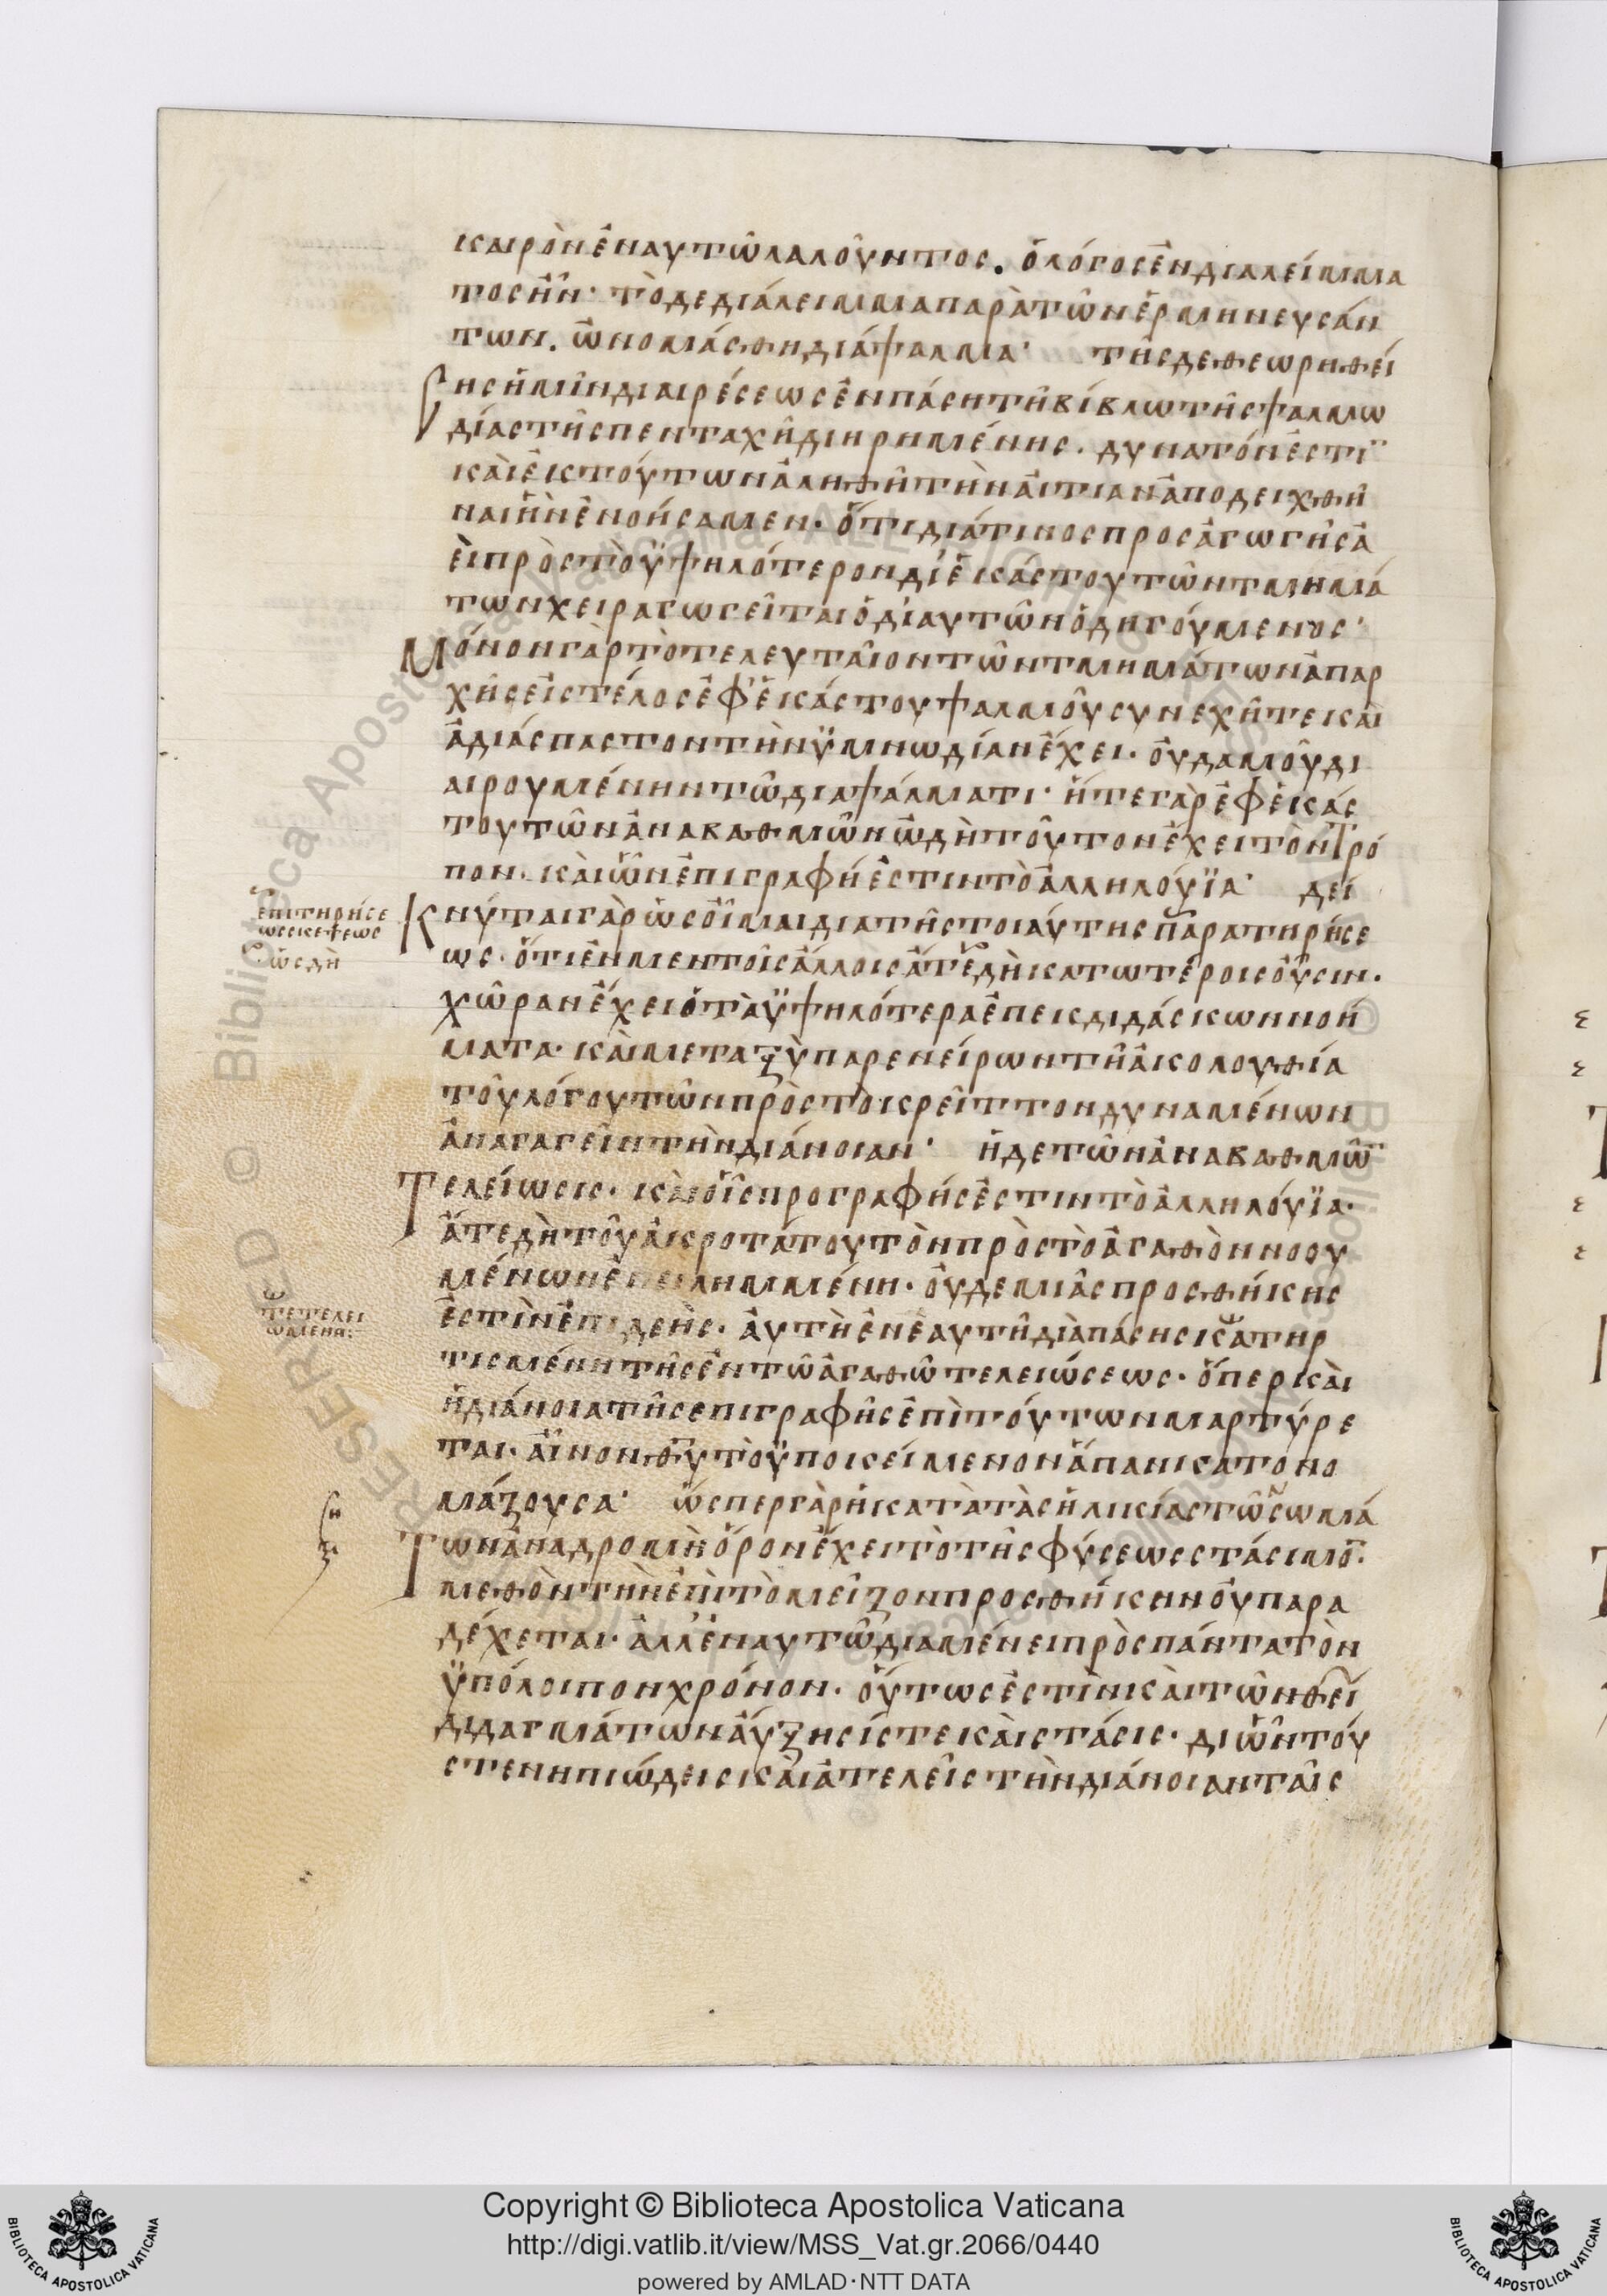 καιρὸν ἐν αυτῶ λαλοῦντος. ὁ λόγος ἐν διαλείμμα
τος ἦν· τὸ δε διάλειμμα παρὰ τῶν ἑρμηνευσάν
των. ὠνομάσθη διάψαλμα· τῆς δε θεωρηθεί
σης ἡμῖν διαιρέσεως ἐν πάσῃ τῇ βίβλω τῆς ψαλμω
δίας τῆς πενταχῇ διῃρημένης. δυνατόν ἐστϊ
καὶ ἐκ τούτων ἀληθῆ τὴν ἀιτιαν ἀποδειχθῆ
ναι ἣν ἐνοήσαμεν· ὅτι διά τινος προσαγωγῆς ἀ
εὶ πρὸς τὸ ϋψηλότερον δι' ἑκάστου τῶν τμημά
των χειραγωγεῖται ὁ δι αυτῶν ὁδηγούμενος·
Μόνον γὰρ τὸ τελευταῖον τῶν τμημάτων ἀπαρ
χῆς εἰς τέλος ἐφ' ἑκάστου ψαλμοῦ συνεχῆ τε καὶ
ἀδιάσπαστον τὴν ϋμνωδίαν ἔχει· οὐδαμοῦ δι
αιρουμένην τῶ διαψάλματι· ἥ τε γὰρ ἐφ ἑκάσ
του τῶν ἀναβαθμῶν ὠδὴ τοῦτον ἔχει τὸν τρό
πον. καὶ ὧν ἐπιγραφή ἐστιν τὸ ἀλληλούϊα· δεί
κνύται γὰρ ὡς οἶμαι δια τῆς τοιαύτης παρατηρήσε
ως· ὅτι ἐν μεν τοῖς ἄλλοις ἅτε δὴ κατωτέροις οὖσιν.
χῶραν ἔχει ὁ τὰ ϋψηλότερα ἐπεκδιδάσκων νοή
ματα· καὶ μεταξὺ παρενείρων τῇ ἀκολουθία
τοῦ λόγου τῶν πρὸς τὸ κρεῖττον δυναμένων
ἀναγαγεῖν τὴν διάνοιαν· ἡ δε τῶν ἀναβαθμῶ̅
Τελείωσις· καὶ οἷς προγραφής ἐστιν τὸ ἀλληλούϊα·
ἅτε δὴ τοῦ ἀκροτάτου τῶν πρὸς τὸ ἀγαθὸν νοου
μένων ἐπειλημμένη· οὐδεμιᾶς προσθήκης
ἐστὶν ἐπιδεής· ἀυτὴ ἐν ἑαυτῇ διὰ πάσης κατηρ
τισμένη τῆς ἐν τῶ ἀγαθῶ τελειώσεως· ὅπερ καὶ
ἡ διάνοια τῆς επιγραφῆς ἐπὶ τούτων μαρτύρε
ται· αἶνον θυ̅ τὸ ϋποκείμενον ἅπαν κατονο
μάζουσα· ὥσπερ γὰρ ἡ κατὰ τὰς ἡλικίας τῶ̅ σωμά
Των ἀναδρομὴ ὅρον ἔχει τὸ τῆς φύσεως στάσιμο̅·
μεθ ὃν τὴν ἐπὶ τὸ μεῖζον προσθήκην οὐ παρα
δέχεται· ἀλλ' ἐν αυτῶ διαμένει πρὸς πάντα τὸν
ϋπόλοιπον χρόνον· οὕτως ἐστὶν καὶ τῶν θεί
διδαγμάτων ἀύξησίς τε καὶ στάσις· δι ὧν τού
στε νηπιώδεις καὶ ἀτελεῖς τὴν διάνοιαν ταῖς
επιτηρήσε
ως σκεψεως
ὡς δὴ
τετελει
ωμένη:
ση
Copyright © Biblioteca Apostolica Vaticana
http://digi.vatlib.it/view/MSS_Vat.gr.2066/0440
powered by AMLAD·NTT DATA
BIBLIOTECA APOSTOLICA VATICANA
BIBLIOTECA APOSTOLICA VATICANA